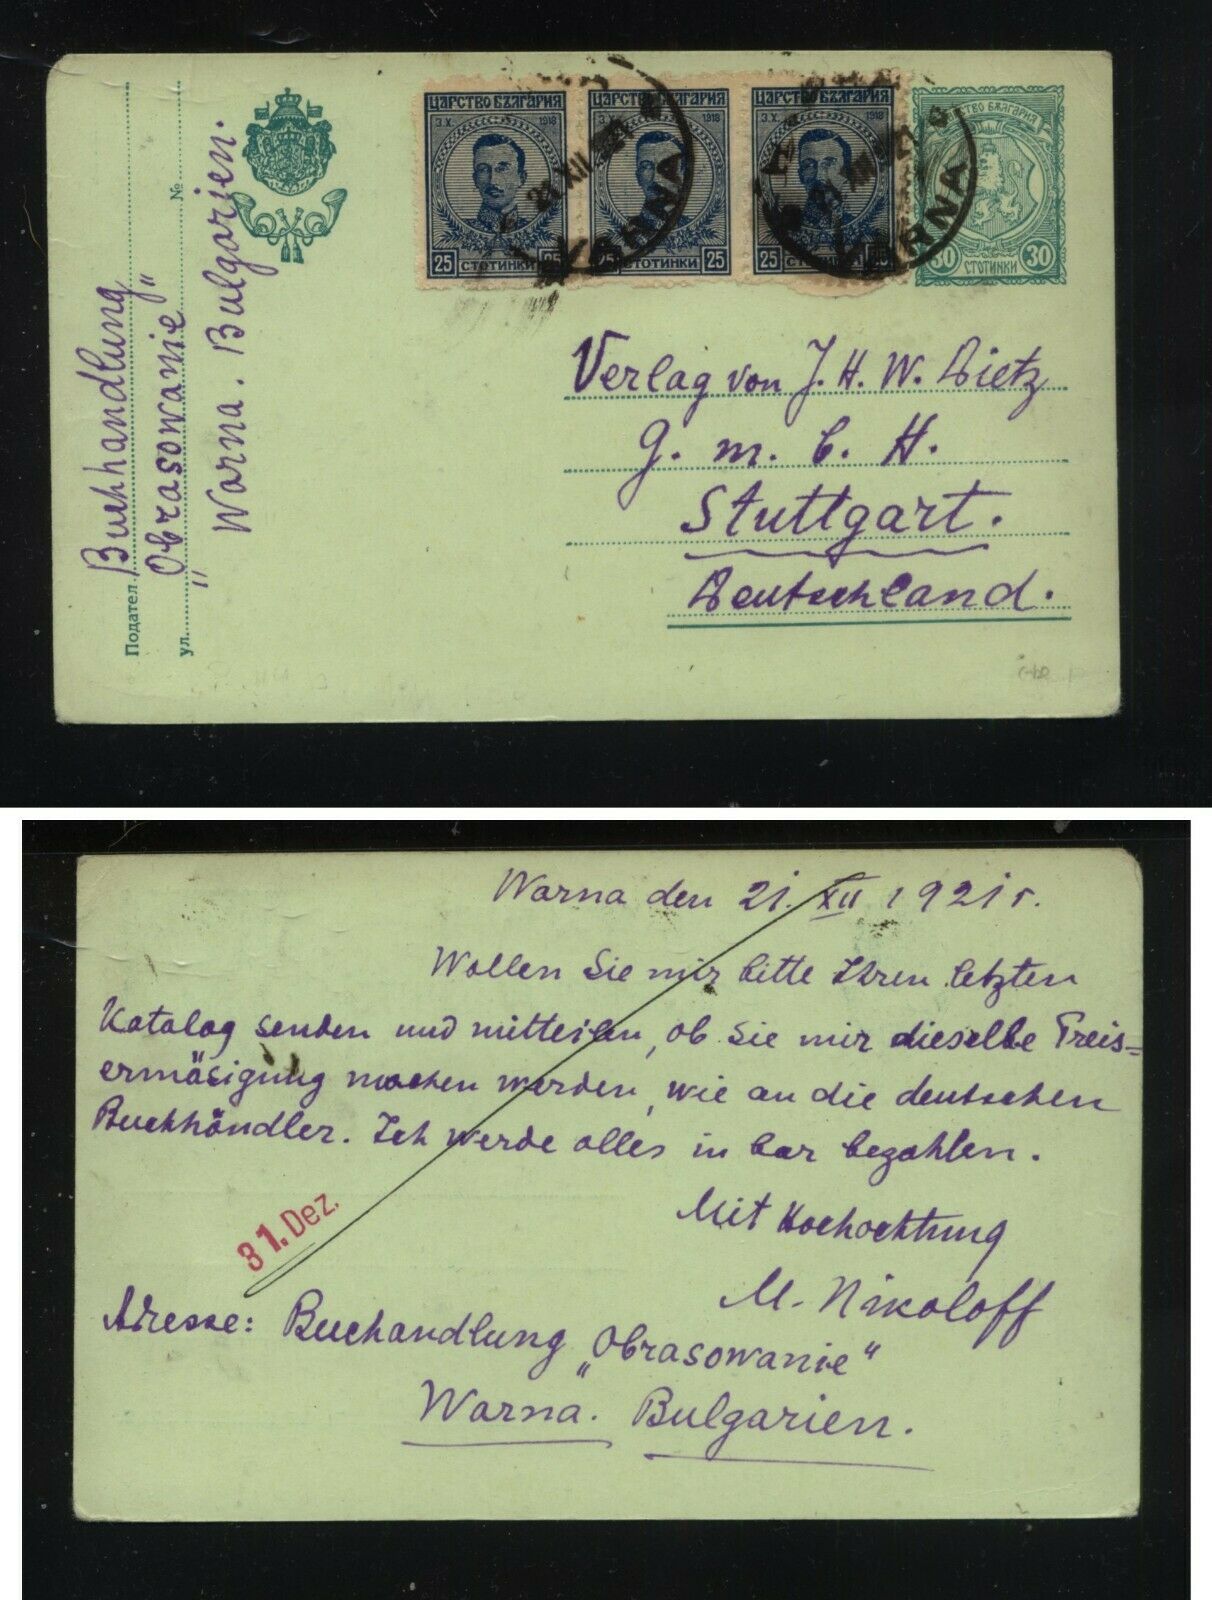 Подател
ул.
№
Buchhandlung
„Obrasowanie"
Warna. Bulgarien.
ЦАРСТВО БЪЛГАРИЯ
3.X. 1918
25 СТОТИНКИ 25
ЦАРСТВО БЪЛГАРИЯ
3.X. 1918
25 СТОТИНКИ 25
ЦАРСТВО БЪЛГАРИЯ
3.X. 1918
25 СТОТИНКИ 25
ЦАРСТВО БЪЛГАРИЯ
30 СТОТИНКИ 30
21 XII
VARNA
21 XII
VARNA
Verlag von J. H. W. Dietz
G. m. b. H.
Stuttgart.
Deutschland.
Warna den 21. XII 1921 г.
Wollen Sie mir bitte Ihren letzten
Katalog senden und mitteilen, ob Sie mir dieselbe Preis=
ermäsigung machen werden, wie an die deutschen
Buchhändler. Ich werde alles in bar bezahlen.
Mit Hochachtung
M. Nikoloff
31. Dez.
Adresse: Buchandlung „Obrasowanie"
Warna. Bulgarien.